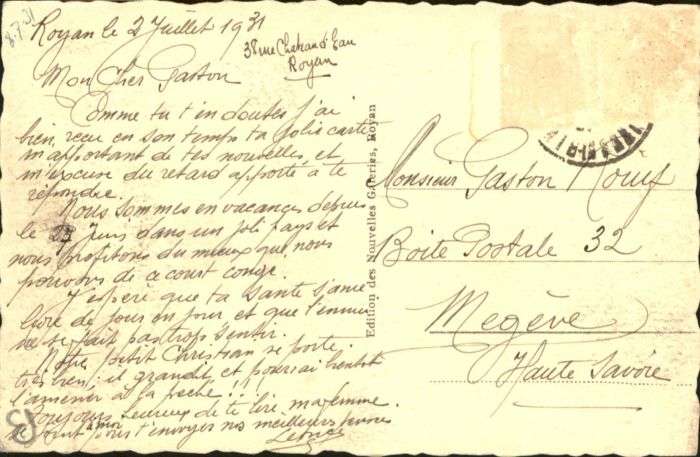 8.7.31
Royan le 2 Juillet 1931
38 rue Chateau d'Eau
Royan
Mon Cher Gaston
Comme tu t'en doutes j'ai
bien recu en son temps ta jolie carte
m'apportant de tes nouvelles, et
m'excuse du retard apporté à te
répondre.
Nous sommes en vacances depuis
le 23 Juin dans un joli pays et
nous profitons du mieux que nous
pouvons de ce court congé.
J'espère que ta santé s'amé
liore de jour en jour et que l'ennui
ne se fait pas trop sentir.
Notre petit Christian se porte
très bien; il grandit et pourrai bientôt
l'amener à la pêche!!!
Toujours heureux de te lire ma femme
se joint à moi pour t'envoyer nos meilleurs
Edition des Nouvelles Galeries, Royan
Monsieur Gaston
Boite Postale 32
Megève
Haute Savoie